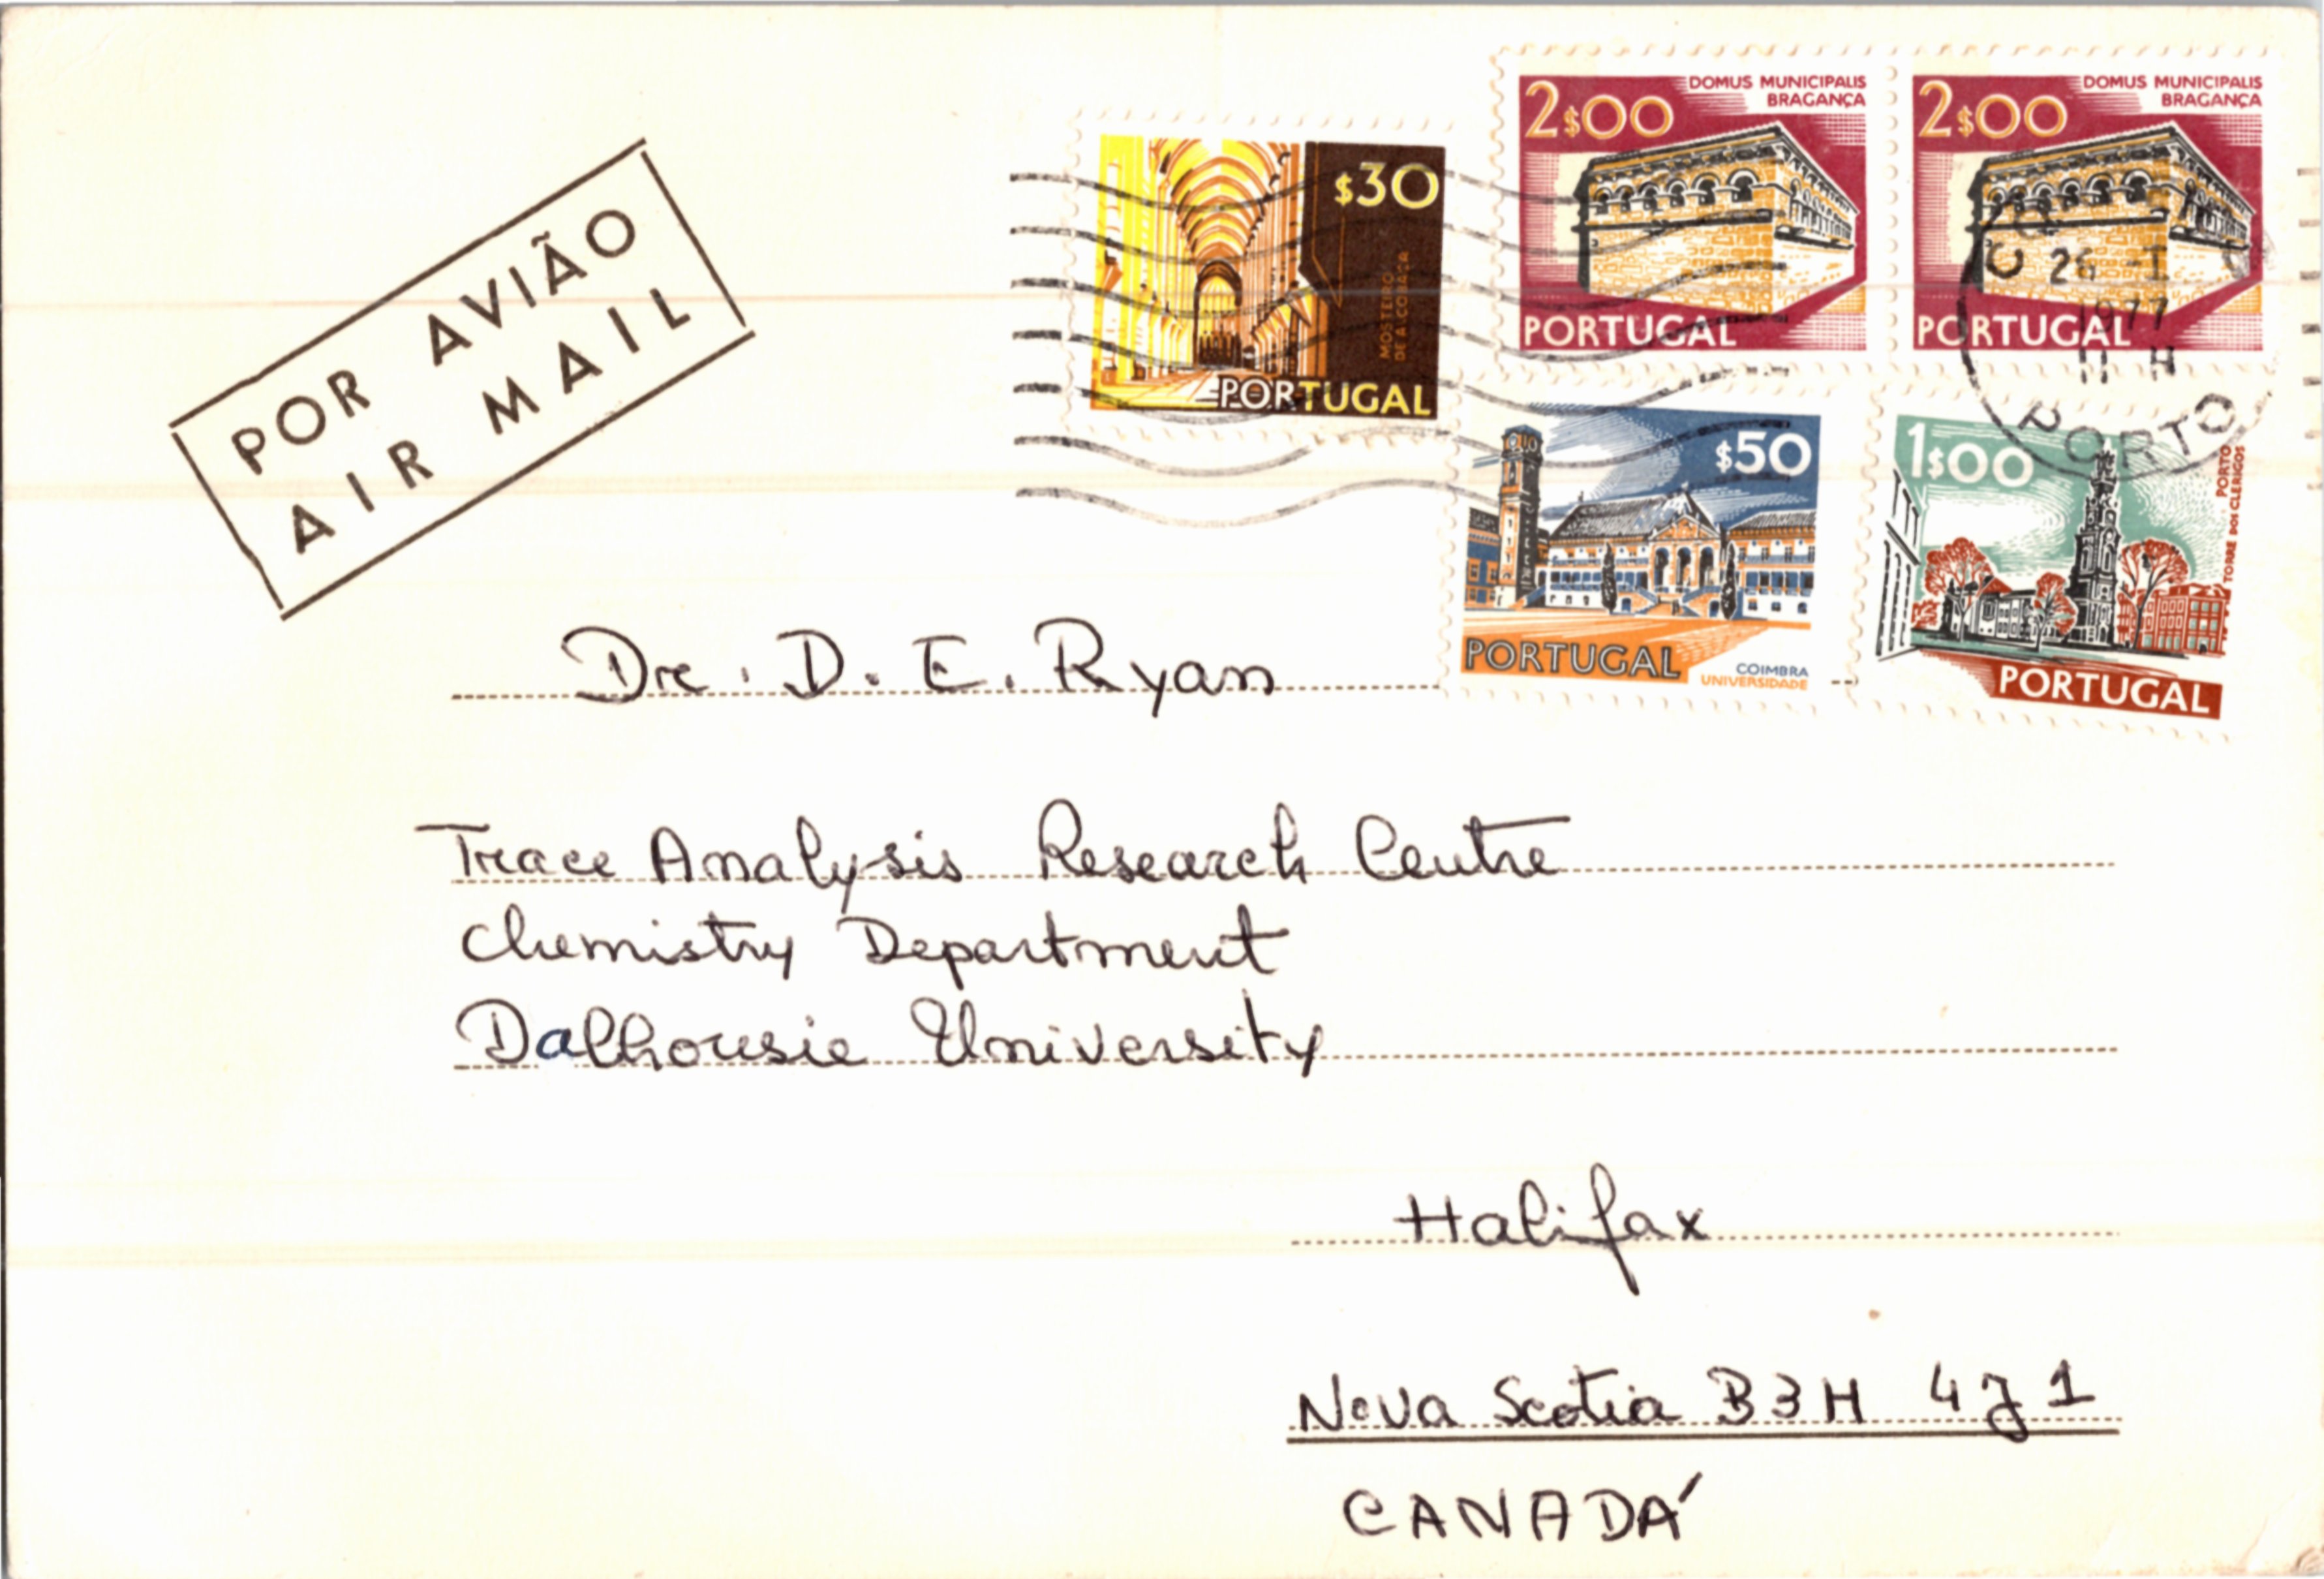 POR AVIÃO
AIR MAIL
$30
MOSTEIRO
DE ALCOBAÇA
PORTUGAL
2$00
DOMUS MUNICIPALIS
BRAGANÇA
PORTUGAL
2$00
DOMUS MUNICIPALIS
BRAGANÇA
PORTUGAL
26 -I
1977
H
PORTO
$50
PORTUGAL
COIMBRA
UNIVERSIDADE
1$00
PORTO
TORRE DOS CLERIGOS
PORTUGAL
Dr. D. E. Ryan
Trace Analysis Research Centre
Chemistry Department
Dalhousie University
Halifax
Nova Scotia B3H 4J1
CANADÁ